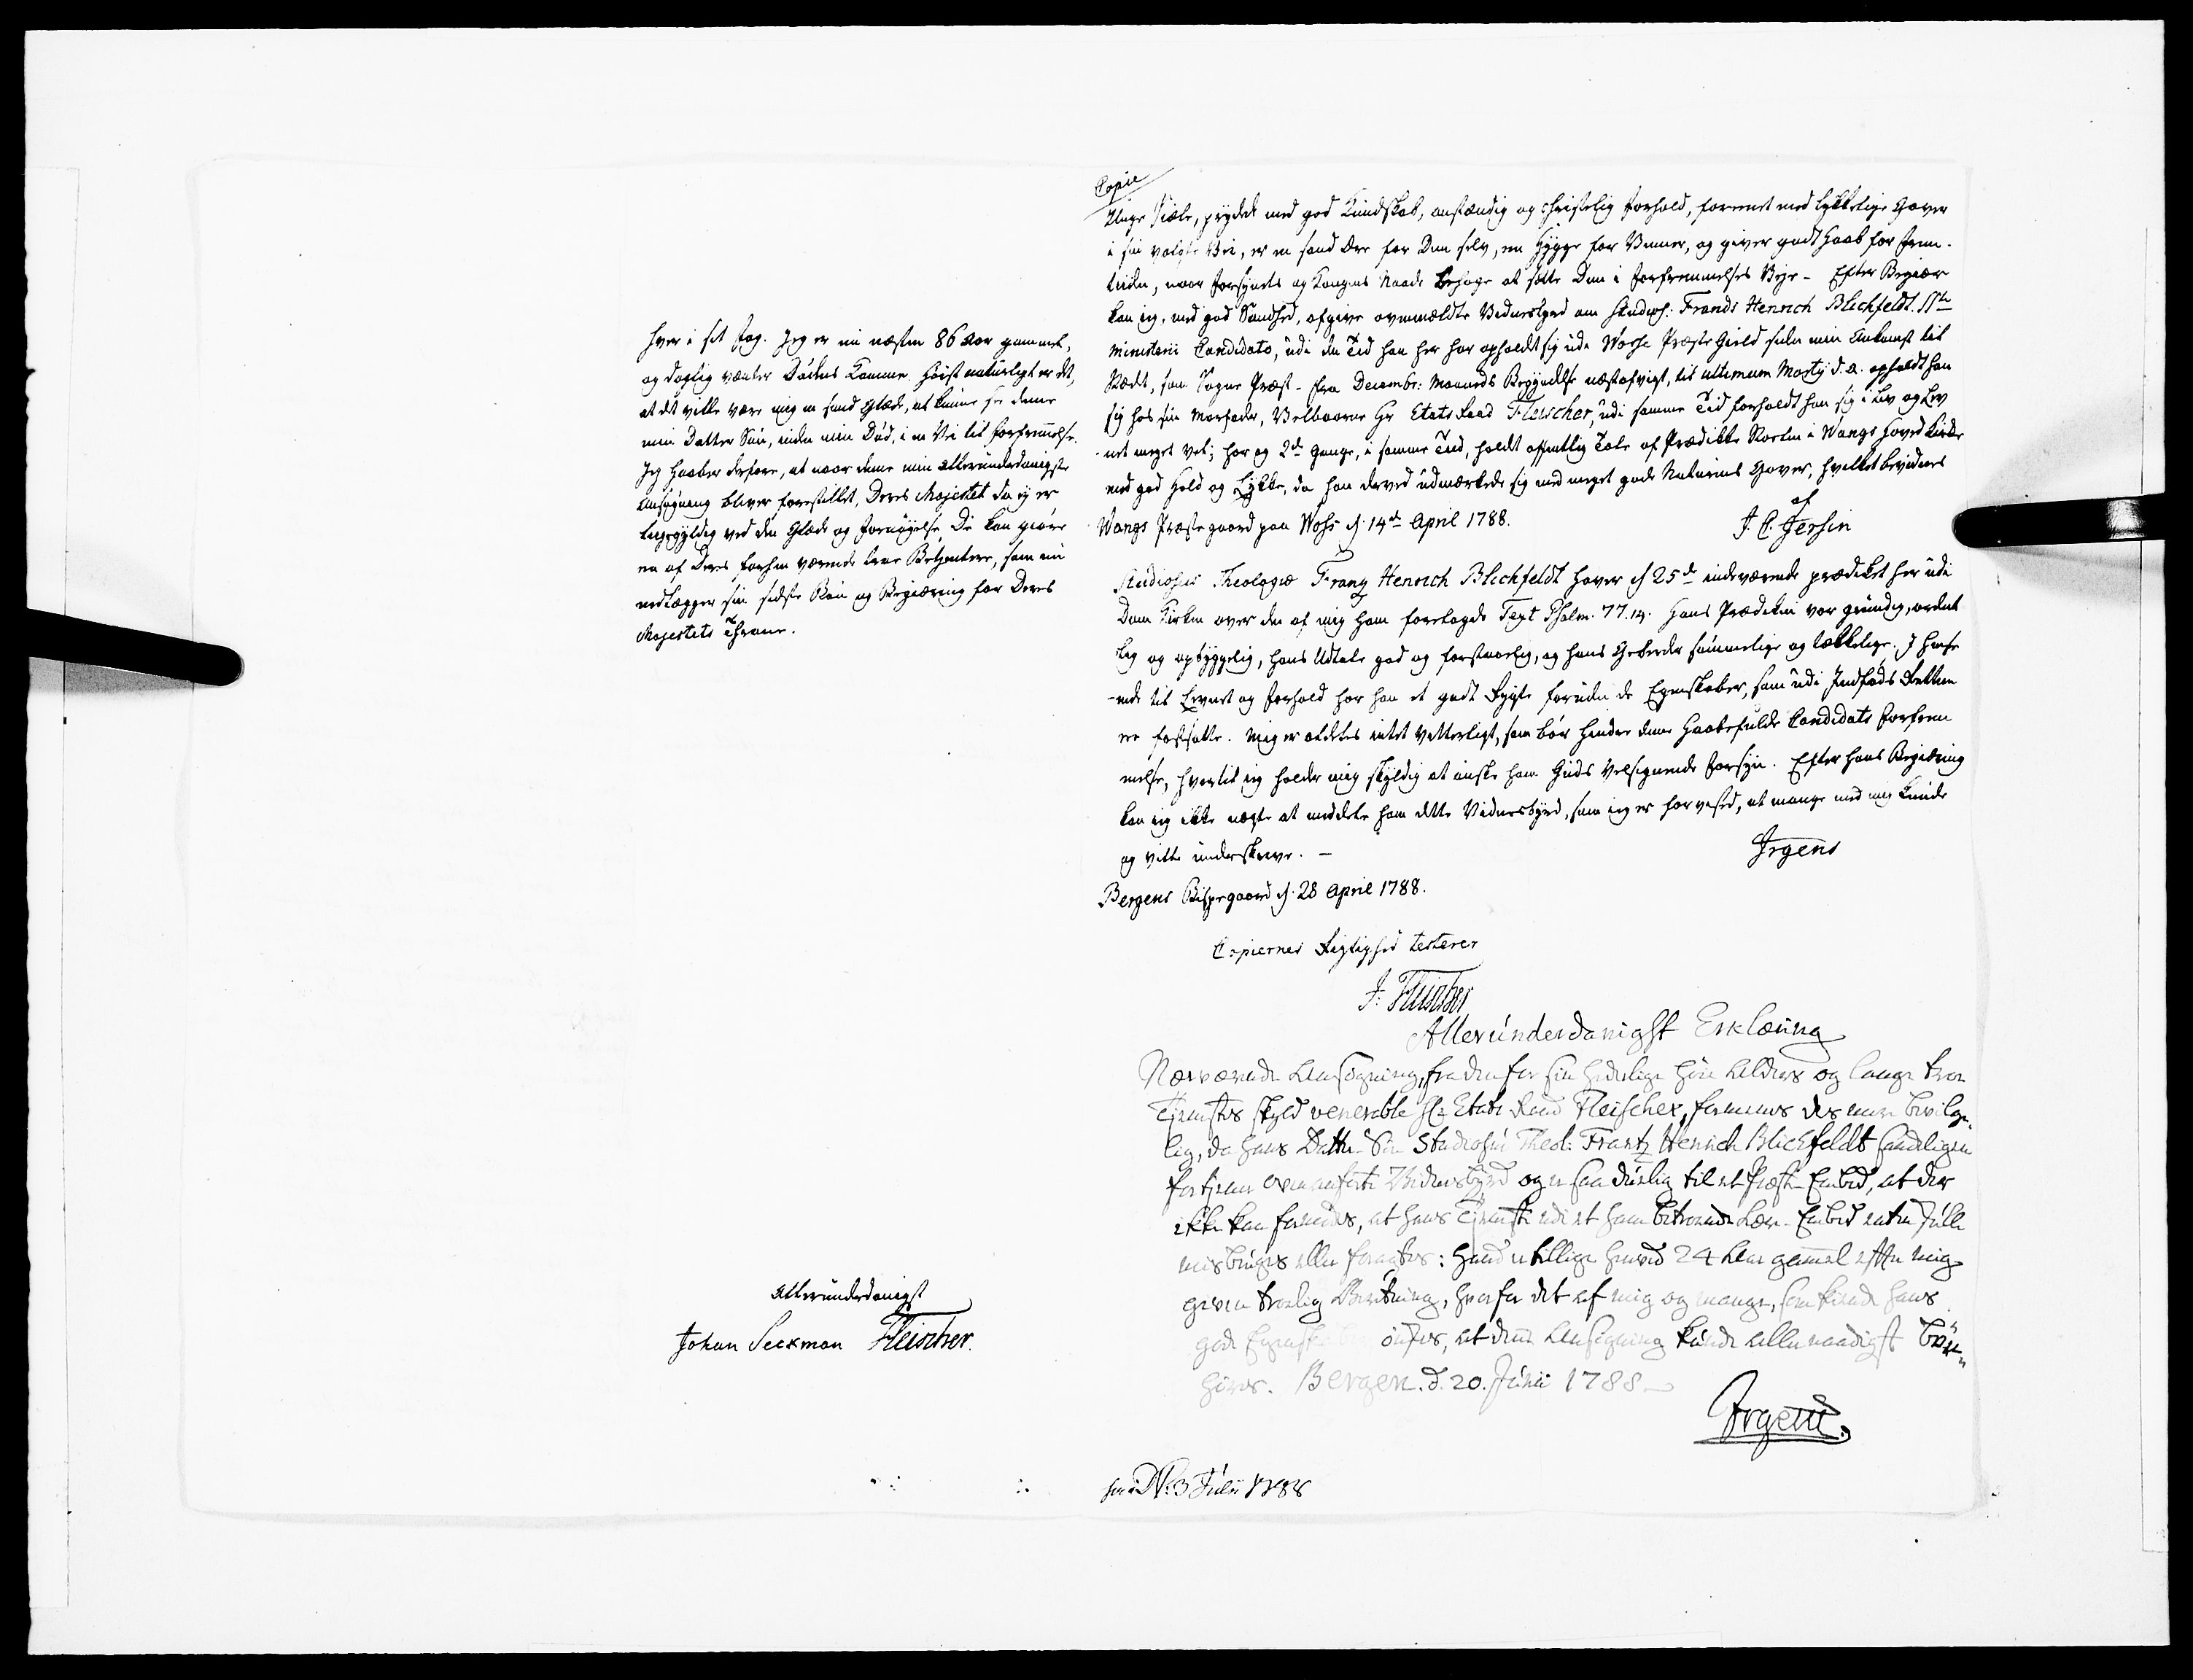 hver i sit Fag. Jeg er nu næsten 86 Aar gammel,
og daglig vænter Dødens Komme. Høist naturligt er det,
at det vilde være mig en sand Glæde, at kunne see denne
min Datter Søn, inden min Død, i en Vei til Forfremmelse.
Jeg haaber derfore, at naar denne min allerunderdanigste
Ansøgning bliver forestillet, Deres Majestet da ej er
ligegyldig ved den Glæde og Fornøyelse De kan giøre
en af Deres forhen værende troe Betjentere, som nu
nedlægger sin sidste Bøn og Begiæring for Deres
Majestets Throne.
Allerunderdanigst
Johan Seckman Fleischer.
Copie
Unge Siæle, prydede med god Kundskab, anstændig og christelig Forhold, forenet med lykkelige Gaver
i sin valgte Vei, er en sand Ære for Dem selv, en Hygge for Venner, og giver godt Haab for Frem-
tiden, naar Forsynets og Kongens Naade behage at sette Dem i Forfremmelses Veje - Efter Begiær
kan jeg, med god Sandhed, afgive ovenmældte Vidnesbyrd om Studios: Frands Henrich Blichfeldt. SSte
Ministerii Candidato, udi den Tid han her har opholdt sig udi Wosse Præste Gield siden min Ankomst til
Stædet, som Sogne Præst - fra Decembr: Maaneds Begyndelse næstafvigt, til ultimum Martij d. a. opholdt han
sig hos sin Morfader, Velbaarne Hr Etats Raad Fleischer, udi samme Tid forholdt han sig i Liv og Lev
net meget vel; har og 2de Gange, i samme Tid, holdt offentlig Tale af Prædike Stoelen i Wangs Hoved Kirke
med god Held og Lykke, da han derved udmærkede sig med meget gode Naturens Gaver, hvilket bevidnes
af
Wangs Præstegaard paa Woss d. 14de April 1788.
J. C. Jersin
Studiosus Theologiæ Frantz Henrich Blichfeldt haver d 25de indeværende prædiket her udi
Dom Kirken over den af mig ham forelagde Text Psalm. 77.14. Hans Prædiken var grundig, ordent
lig og opbyggelig, hans Udtale god og forstaaelig, og hans Geberder sømmelige og lækkelige. I Hense
-ende til Levnet og Forhold har han et godt Rygte foruden de Egenskaber, som udi Indføds Retten
er fastsatte. Mig er aldeles intet vitterligt, som bør hindre denne haabefulde Candidats Forfrem
melse, hvortil jeg holder mig skyldig at ønske ham Guds velsignende Forsyn. Efter hans Begiæring
kan jeg ikke nægte at meddele ham dette Vidnesbyrd, som jeg er forvissed, at mange med mig kunde
og ville underskrive. -
Irgens
Bergens Bispegaard d. 28 April 1788.
Copiernes Rigtighed testerer
J: Fleischer
Allerunderdanigst Erklæring
Nærværende Ansøgning, fra den for sin hæderlige høie Alders og lange troe
Tjenestes skyld venerable Hr Etats Raad Fleischer, formenes des mere bevilge-
lig, da hans Datter Søn Studiosus Theol: Frantz Henrich Blichfeldt sandeligen
fortjener ovenanførte Vidnesbyrd og er saa duelig til et Præste Embed, at der
ikke kan formodes, at hans Tjeneste udi et ham betroende Lære-Embed enten skulle
misbruges eller foragtes: hand er tillige henved 24 Aar gammel efter mig
given troelig Beretning, hvorfor det af mig og mange, som kiende hans
gode Egenskaber ønskes, at denne Ansøgning kunde allernaadigst bøn-
høres. Bergen. d. 20. Junii 1788
Irgens.
D. 3 Julii 1788